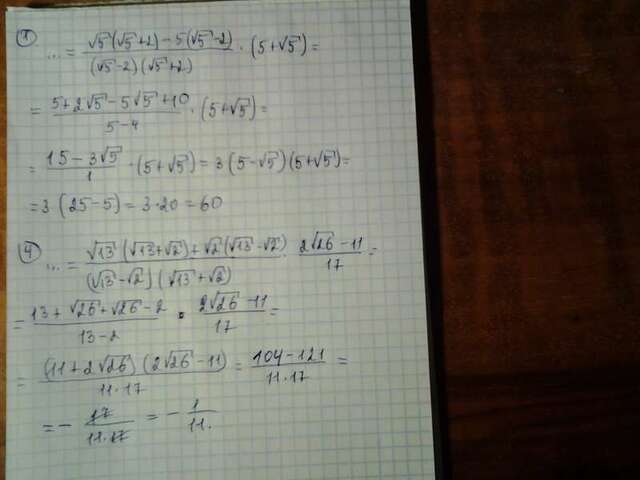 3) ... = (√5(√5+2) − 5(√5−2))/((√5−2)(√5+2)) · (5+√5) =
= (5+2√5−5√5+10)/(5−4) · (5+√5) =
= (15−3√5)/1 · (5+√5) = 3(5−√5)(5+√5) =
= 3(25−5) = 3·20 = 60
4) ... = (√13(√13+√2)+√2(√13−√2))/((√13−√2)(√13+√2)) · (2√26−11)/17 =
= (13+√26+√26−2)/(13−2) · (2√26−11)/17 =
= ((11+2√26)(2√26−11))/(11·17) = (104−121)/(11·17) =
= − 17/(11·17) = − 1/11.